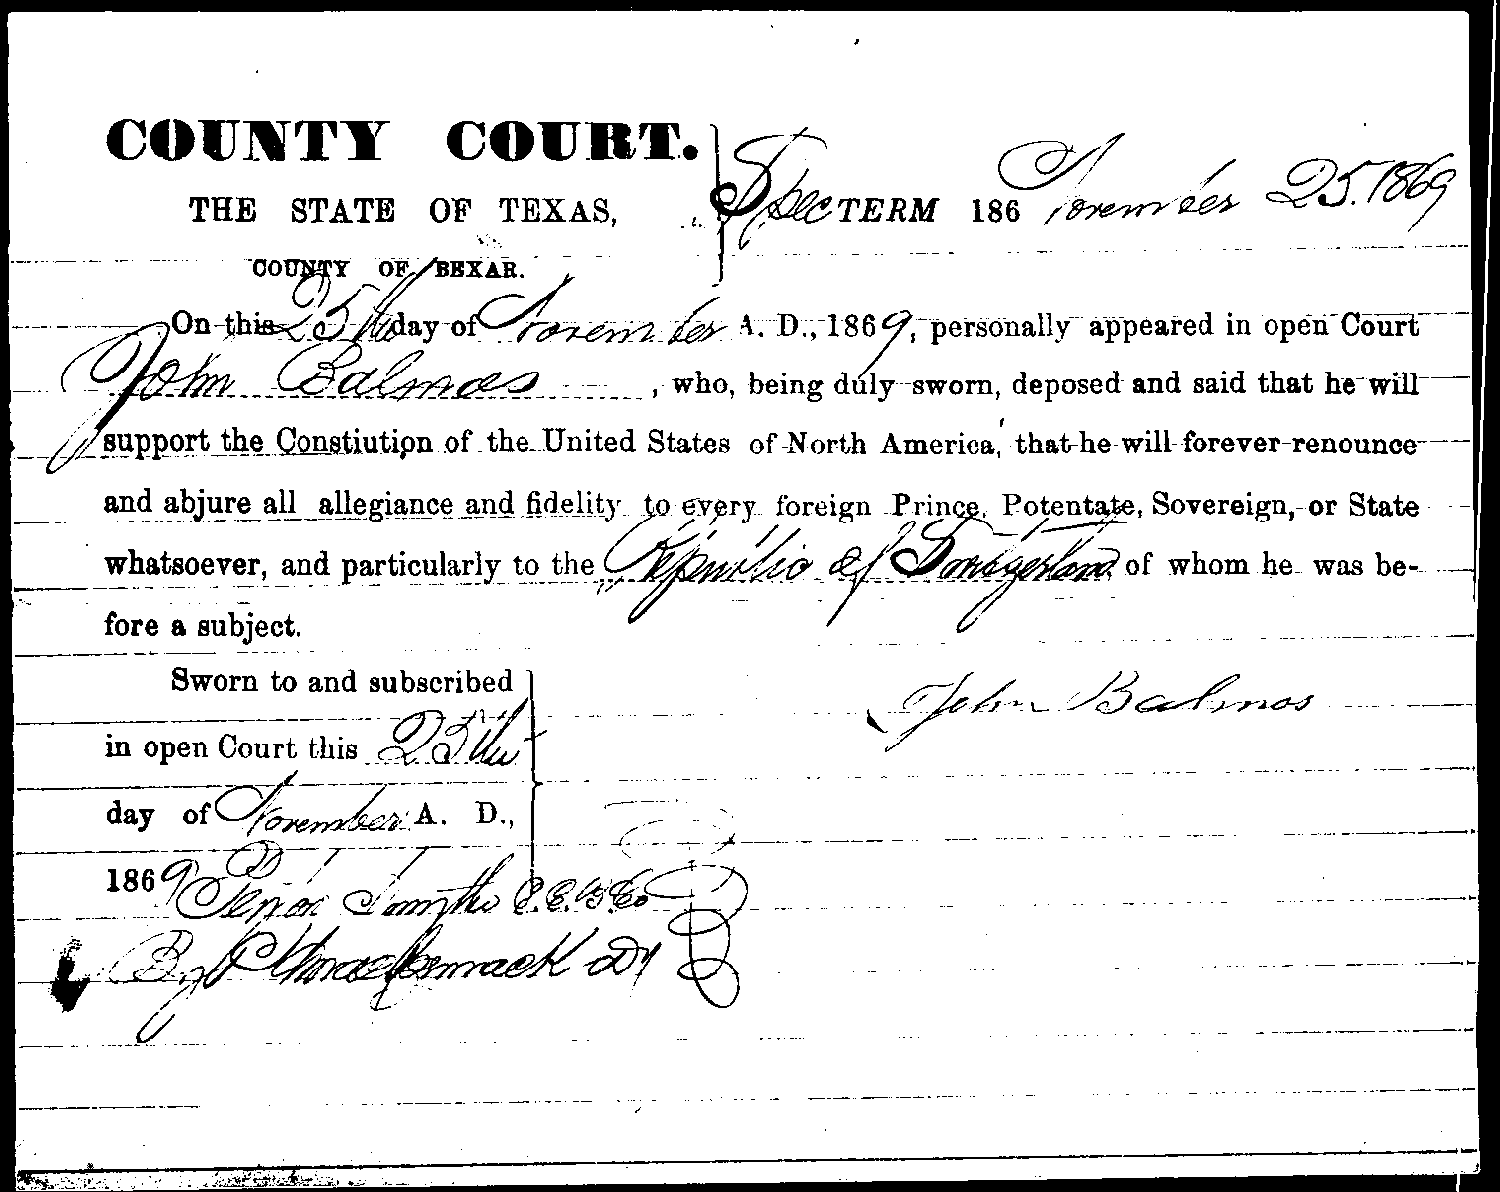 COUNTY COURT.
Spec TERM 186 November 25. 1869
THE STATE OF TEXAS,
COUNTY OF BEXAR.
On this 25th day of November A. D., 1869, personally appeared in open Court
John Balmos , who, being duly sworn, deposed and said that he will
support the Constiution of the United States of North America, that he will forever renounce
and abjure all allegiance and fidelity to every foreign Prince, Potentate, Sovereign, or State
whatsoever, and particularly to the Republic of Switzerland of whom he was be-
fore a subject.
Sworn to and subscribed
John Balmos
in open Court this 25th
day of November A. D.,
1869
Smythe C.C.B.Co
By Dy